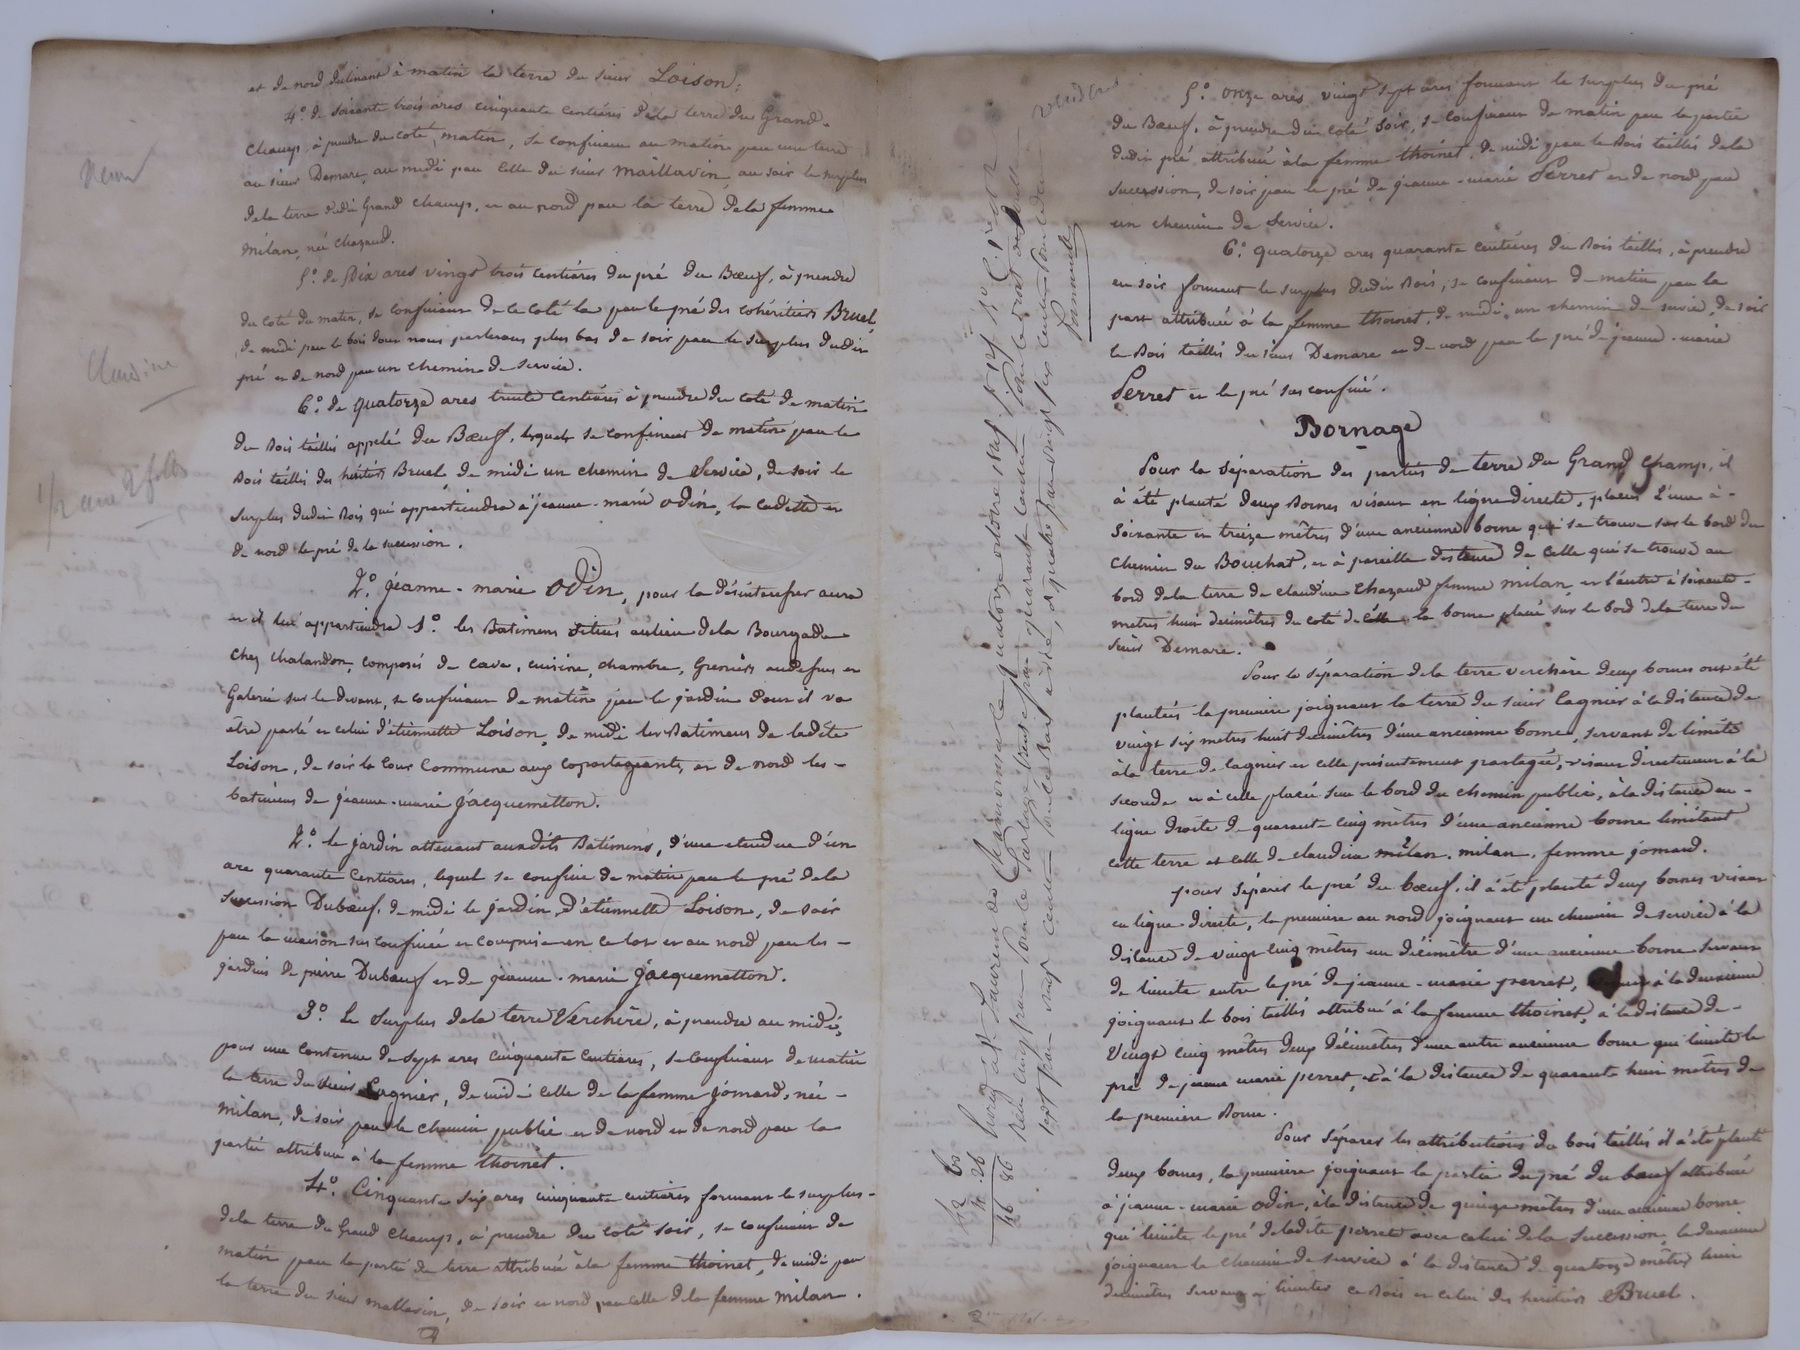 et de nord déclinant à matin la terre du sieur Loison;
4.° de soixante trois ares cinquante centiares de la terre du Grand-
champ, à prendre du coté matin, se confinant au matin par une terre
au sieur Demare, au midi par celle du sieur Maillavin, au soir le surplus
de la terre dudit Grand champ, et au nord par la terre de la femme
Milan, née Chazaud.
5.° de dix ares vingt trois centiares du pré du Bœuf, à prendre
du coté de matin, se confinant de ce coté là par le pré des cohéritiers Bruel,
de midi par le bois dont nous parlerons plus bas de soir par le surplus dudit
pré et de nord par un chemin de service.
6.° de quatorze ares trente centiares à prendre du coté de matin
du Bois taillis appelé du Bœuf, lequel se confinent de matin par le
Bois taillis des héritiers Bruel de midi un chemin de Service, de soir le
surplus dudit Bois qui appartiendra à jeanne-marie odin, la cadette et
de nord le pré de la succession.
2.° jeanne-marie Odin, pour la désintéresser aura
et il lui appartiendra 1.° les Batimens situés au lieu de la Bourgade
chez chalandon, composés de cave, cuisine, chambre, Greniers au dessus et
Galerie sur le devant, se confinant de matin par le jardin dont il va
être parlé et celui d'étiennette Loison, de midi les Batimens de ladite
Loison, de soir la cour commune aux copartageants, et de nord les-
batimens de jeanne-marie jacquemetton.
2.° le jardin attenant auxdits Batimens, d'une etendue d'un
are quarante centiares, lequel se confine de matin par le pré de la
Succession Dubœuf, de midi le jardin d'étiennette Loison, de soir
par la maison sus confinée et comprise en ce lot et au nord par les-
jardins de pierre Dubœuf et de jeanne-marie jacquemetton.
3.° Le surplus de la terre Verchère, à prendre au midi,
pour une contenue de sept ares cinquante centiares, se confinant de matin
la terre du sieur Lagnier, de midi celle de la femme jomard, née-
milan, de soir par le chemin public et de nord et de nord par la
partie attribuée à la femme thoinet.
4.° Cinquante six ares cinquante centiares formant le surplus-
de la terre du Grand Champ, à prendre du coté soir, se confinant de
matin par la partie de terre attribuée à la femme thoinet, de midi par
la terre du sieur mallavin, de soir et nord par celle de la femme milan.
Claudine
Enregistré à St Laurent de Chamousset le quatorze octobre
5.° onze ares vingt sept ares formant le surplus du pré
du Bœuf, à prendre du coté soir, se confinant de matin par la partie
dudit pré, attribuée à la femme thoinet, de midi par le Bois taillis de la
succession, de soir par le pré de jeanne-marie Perret et de nord par
un chemin de service.
6.° quatorze ares quarante centiares du Bois taillis, à prendre
en soir formant le surplus dudit Bois, se confinant de matin par la
part attribuée à la femme thoinet, de midi, un chemin de service, de soir
le Bois taillis du sieur Demare et de nord par le pré de jeanne-marie
Perret et le pré sus confiné.
Bornage
Pour la séparation des parties de terre du Grand Champ, il
à été planté deux Bornes visant en ligne directe, placés L'une à-
soixante et treize mètres d'une ancienne borne qui se trouve sur le bord du
chemin du Bouchat, et à pareille distance de celle qui se trouve au
bord de la terre de claudine Chazaud femme milan et l'autre à soixante-
metres huit décimètres du coté de celle la borne placée sur le bord de la terre du
sieur Demare.
Pour la séparation de la terre verchère deux bornes ont été
plantées la première joignant la terre du sieur Lagnier à la distance de
vingt six metres huit décimètres d'une ancienne borne, servant de limite
à la terre de lagnier et celle présentement partagée, visant directement à la
seconde et à celle placée sur le bord du chemin public, à la distance en-
ligne droite de quarante cinq mètres d'une ancienne borne limitant
cette terre et celle de claudine milan. milan, femme jomard.
pour séparer le pré du bœuf, il à été planté deux bornes visant
en ligne directe, la première au nord joignant un chemin de service à la
distance de vingt cinq mètres un décimètre d'une ancienne borne servant
de limite entre le pré de jeanne-marie perret, à la deuxième
joignant le bois taillis attribué à la femme thoinet, à la distance de-
vingt cinq mètres deux décimètres d'une autre ancienne borne qui limite le
pré de jeanne marie perret, et à la distance de quarante huit mètres de
la première Borne.
Pour séparer les attributions du bois taillis il à été planté
deux bornes, la première joignant la partie du pré du bœuf attribué
à jeanne-marie odin, à la distance de quinze mètres d'une ancienne borne
qui limite le pré de ladite perret avec celui de la succession, la deuxième
joignant le chemin de service à la distance de quatorze mètres huit
décimètres servant à limiter ce Bois et celui des héritiers Bruel.